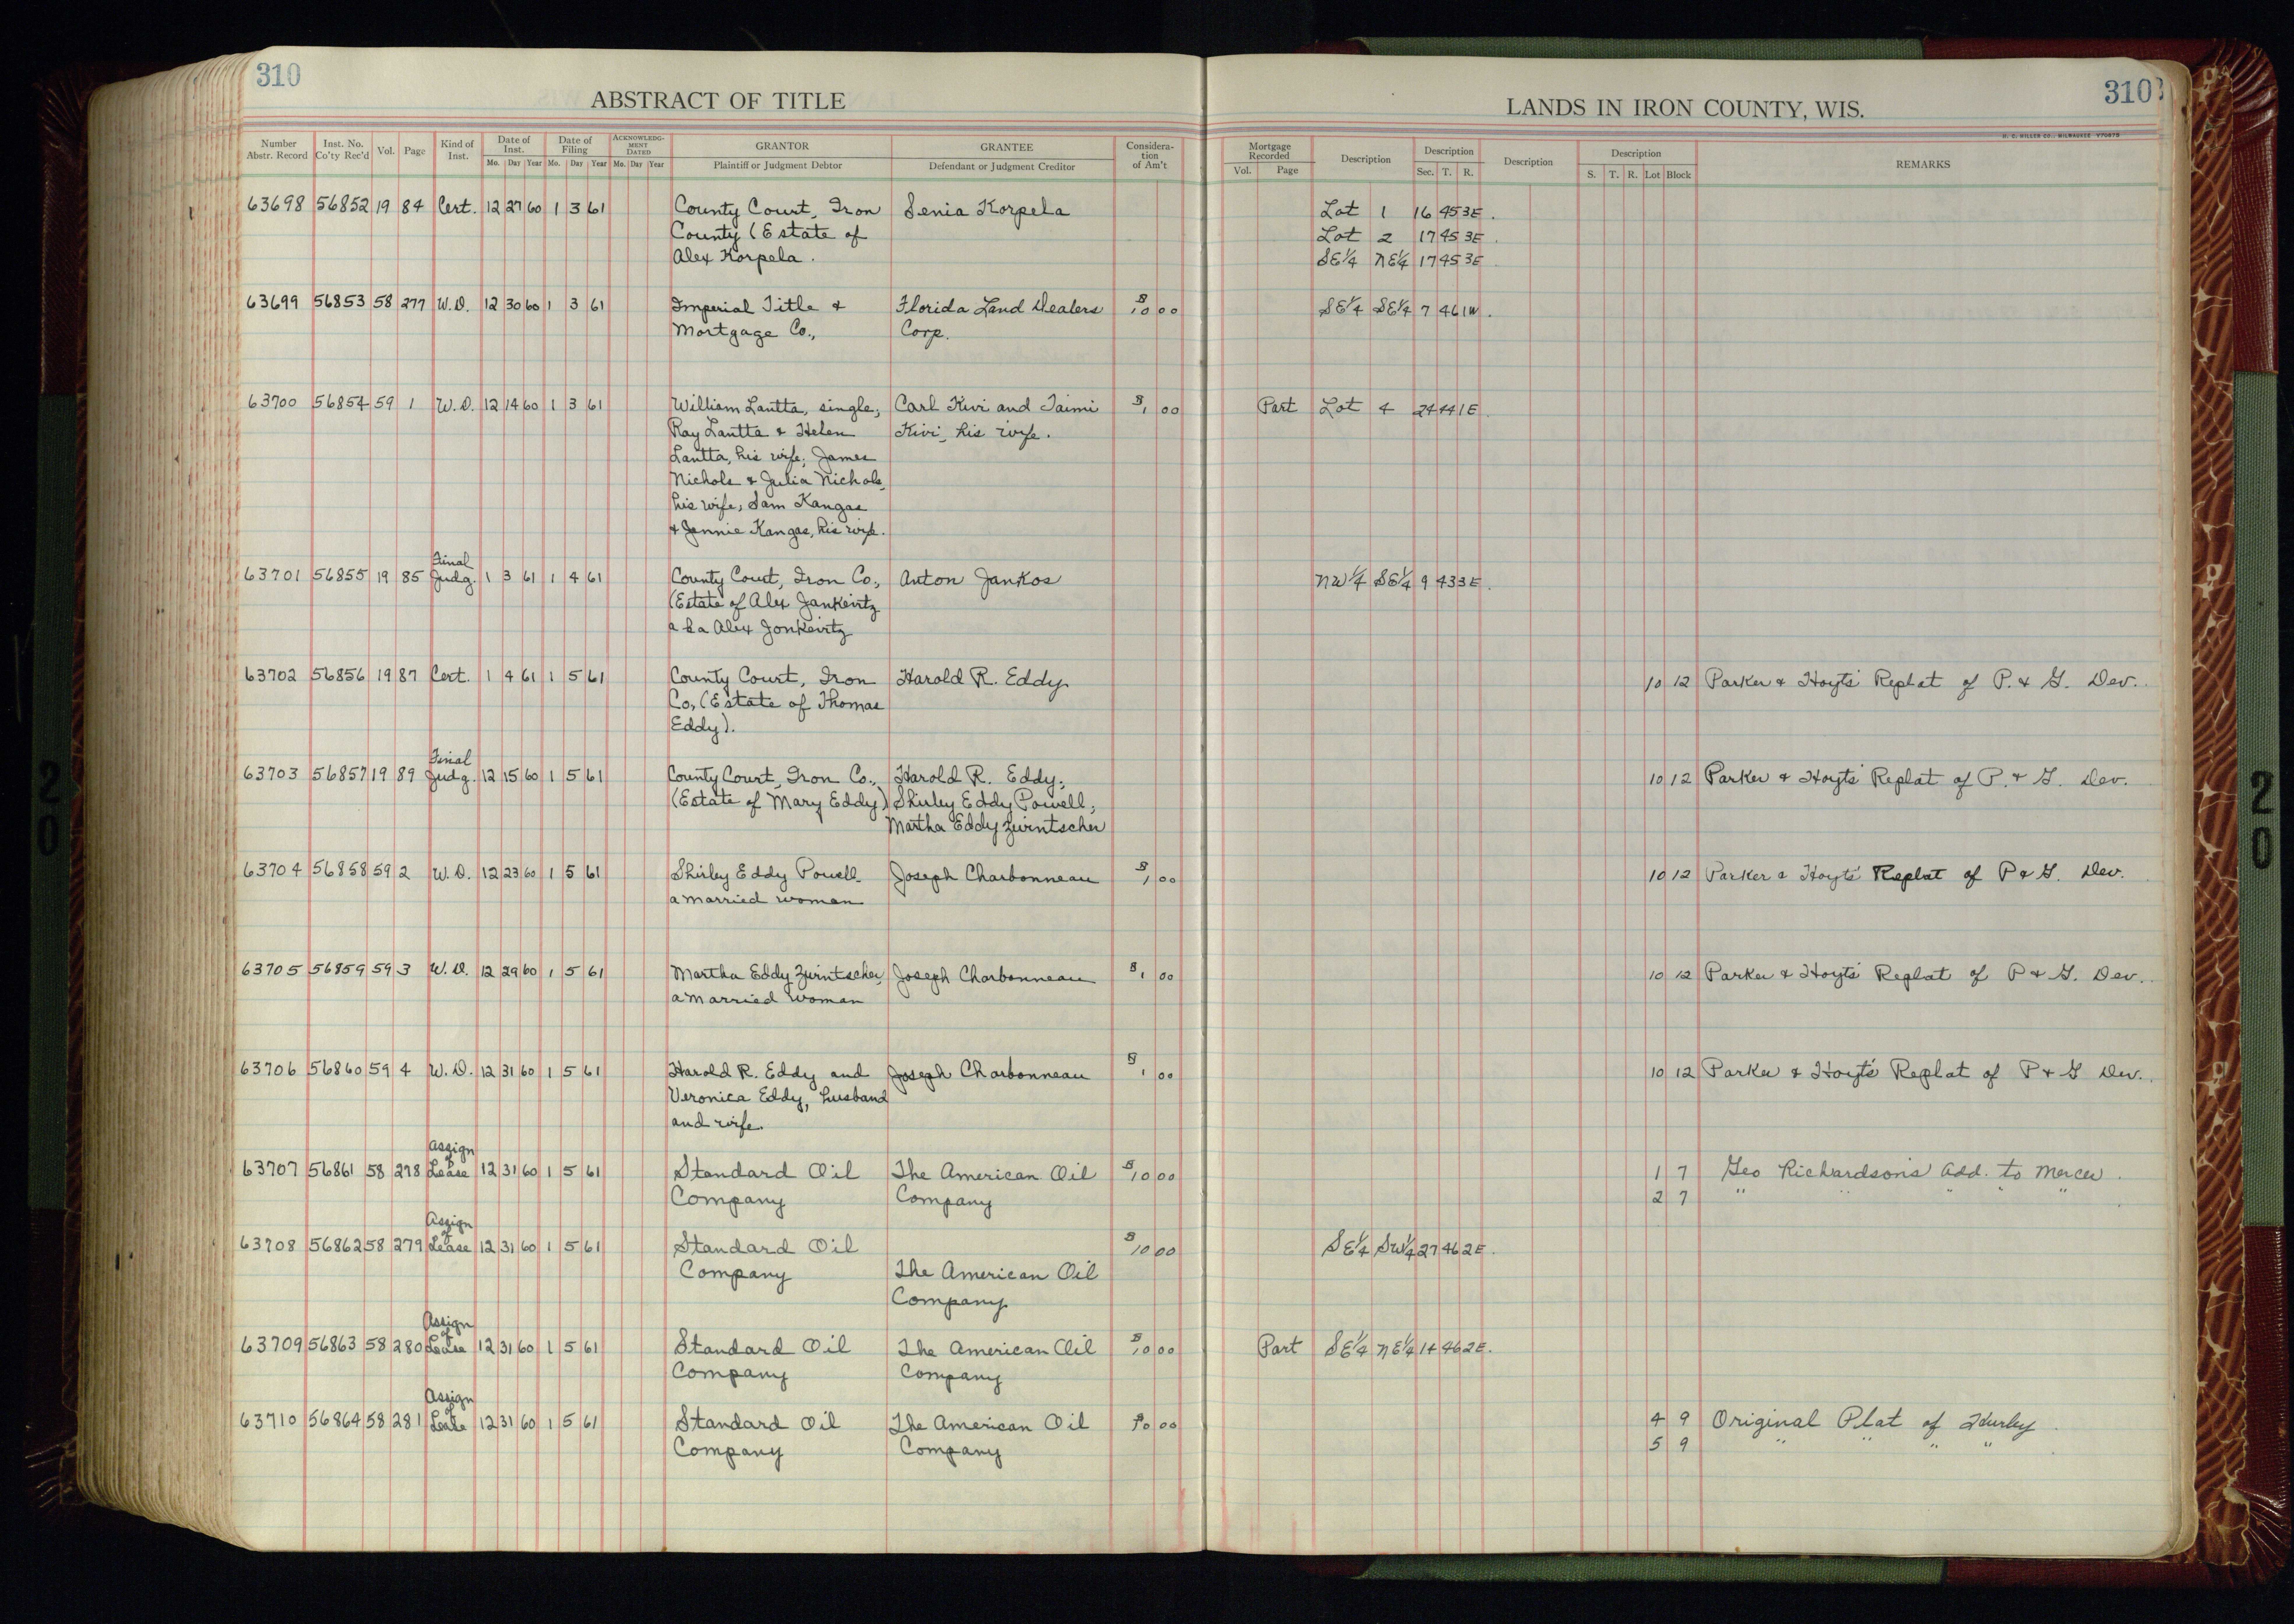 310
ABSTRACT OF TITLE
LANDS IN IRON COUNTY, WIS.
310
H. C. MILLER CO., MILWAUKEE
Number Abstr. Record | Inst. No. Co'ty Rec'd | Vol. | Page | Kind of Inst. | Date of Inst. Mo. Day Year | Date of Filing Mo. Day Year | ACKNOWLEDGMENT DATED Mo. Day Year | GRANTOR Plaintiff or Judgment Debtor | GRANTEE Defendant or Judgment Creditor | Consideration of Am't | Mortgage Recorded Vol. Page | Description | Description Sec. T. R. | Description | Description S. T. R. Lot Block | REMARKS
63698 56852 19 84 Cert. 12 27 60 1 3 61 County Court, Iron Senia Korpela Lot 1 16 45 3E.
County (Estate of Lot 2 17 45 3E.
Alex Korpela. SE¼ NE¼ 17 45 3E
63699 56853 58 277 W.D. 12 30 60 1 3 61 Imperial Title & Florida Land Dealers $10 00 SE¼ SE¼ 7 46 1W.
Mortgage Co., Corp.
63700 56854 59 1 W.D. 12 14 60 1 3 61 William Lantta, single, Carl Kivi and Taimi $1 00 Part Lot 4 24 44 1E.
Ray Lantta & Helen Kivi, his wife.
Lantta, his wife; James
Nichols & Julia Nichols,
his wife; Sam Kangas
& Jennie Kangas, his wife.
Final
63701 56855 19 85 Judg. 1 3 61 1 4 61 County Court, Iron Co., Anton Jankos NW¼ SE¼ 9 43 3E.
(Estate of Alex Jankevitz
a k a Alex Jonkevitz
63702 56856 19 87 Cert. 1 4 61 1 5 61 County Court, Iron Harold R. Eddy 10 12 Parker & Hoyts' Replat of P. & G. Dev.
Co, (Estate of Thomas
Eddy).
Final
63703 56857 19 89 Judg. 12 15 60 1 5 61 County Court, Iron Co., Harold R. Eddy; 10 12 Parker & Hoyts' Replat of P. & G. Dev.
(Estate of Mary Eddy) Shirley Eddy Powell;
Martha Eddy Zwintscher
63704 56858 59 2 W.D. 12 23 60 1 5 61 Shirley Eddy Powell Joseph Charbonneau $1 00 10 12 Parker & Hoyts' Replat of P & G. Dev.
a married woman
63705 56859 59 3 W.D. 12 29 60 1 5 61 Martha Eddy Zwintscher, Joseph Charbonneau $1 00 10 12 Parker & Hoyts' Replat of P & G. Dev.
a married woman
63706 56860 59 4 W.D. 12 31 60 1 5 61 Harold R. Eddy and Joseph Charbonneau $1 00 10 12 Parker & Hoyt's Replat of P & G Dev.
Veronica Eddy, husband
and wife.
Assign
of
63707 56861 58 278 Lease 12 31 60 1 5 61 Standard Oil The American Oil $10 00 1 7 Geo Richardson's Add. to Mercer.
Company Company 2 7 " " " " "
Assign
of
63708 56862 58 279 Lease 12 31 60 1 5 61 Standard Oil $10 00 SE¼ SW¼ 27 46 2E.
Company The American Oil
Company
Assign
of
63709 56863 58 280 Lease 12 31 60 1 5 61 Standard Oil The American Oil $10 00 Part SE¼ NE¼ 14 46 2E.
Company Company
Assign
of
63710 56864 58 281 Lease 12 31 60 1 5 61 Standard Oil The American Oil $10 00 4 9 Original Plat of Hurley
Company Company 5 9 " " " "
20
20